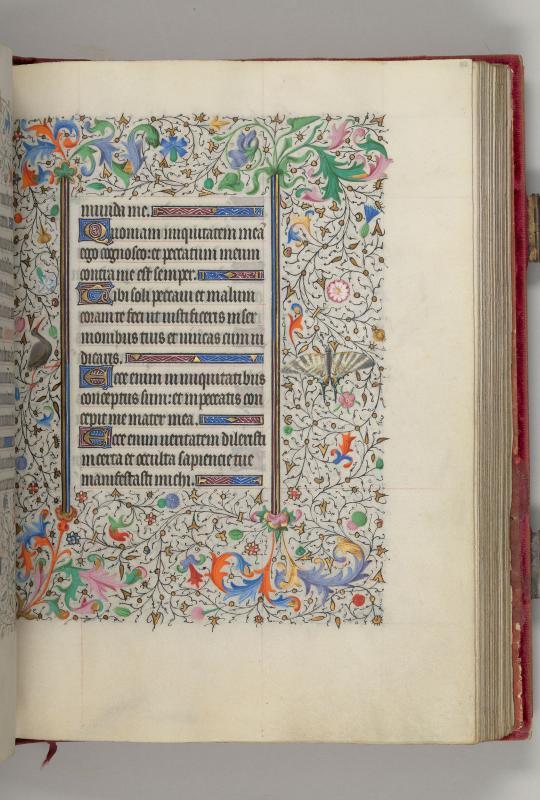 munda me.
Quoniam iniquitatem meā
ego cognosco: et peccatum meum
contra me est semper.
Tibi soli peccaui et malum
coram te feci ut iustificeris in ser
monibus tuis et uincas cum iu
dicaris.
Ecce enim in iniquitatibus
conceptus sum: et in peccatis con
cepit me mater mea.
Ecce enim ueritatem dilexisti
incerta et occulta sapiencie tue
manifestasti michi.